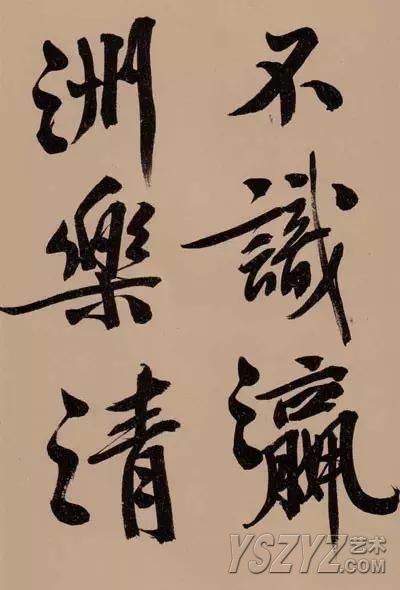 不識瀛
洲樂清
YSZYZ艺术
.COM